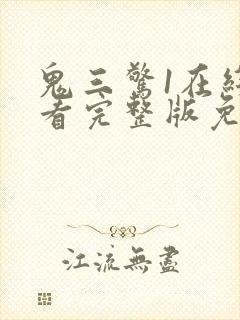 鬼三驚1在線
看完整版免
江流無盡